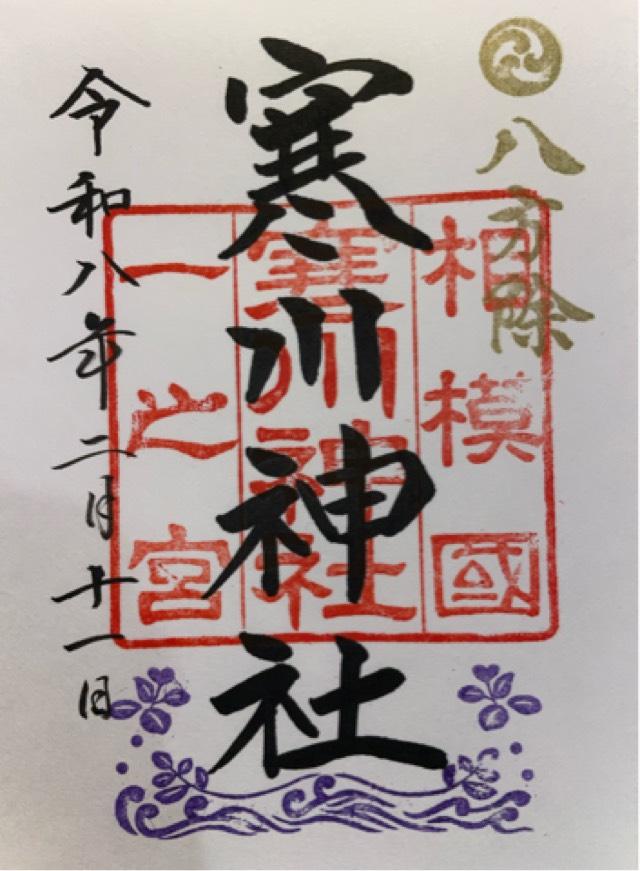 八方除
相模國
寒川神社
一之宮
寒川神社
令和八年二月十一日